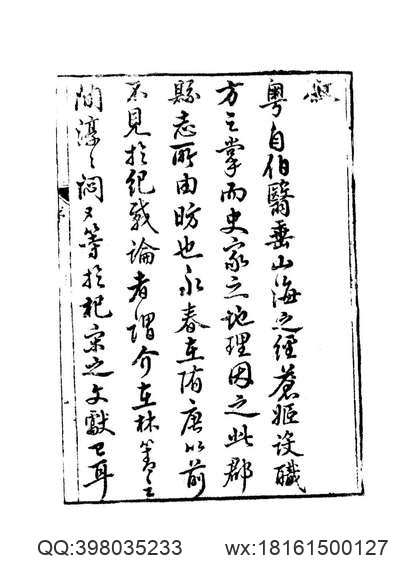 敘
粵自伯翳垂山海之經蒼姬設職
方之掌而史家之地理因之此郡
縣志所由昉也永春在隋唐以前
不見於紀載論者謂介在林箐之
間濛々悶又等於杞宋之文獻已耳
序
QQ:398035233 wx:18161500127